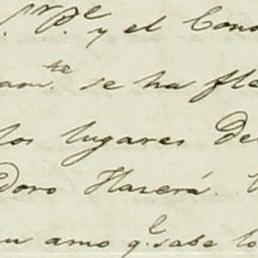 Sr. Pe. y el Cono
am.te se ha fle
los lugares de
doro Haserá.
su amo q.e sabe lo